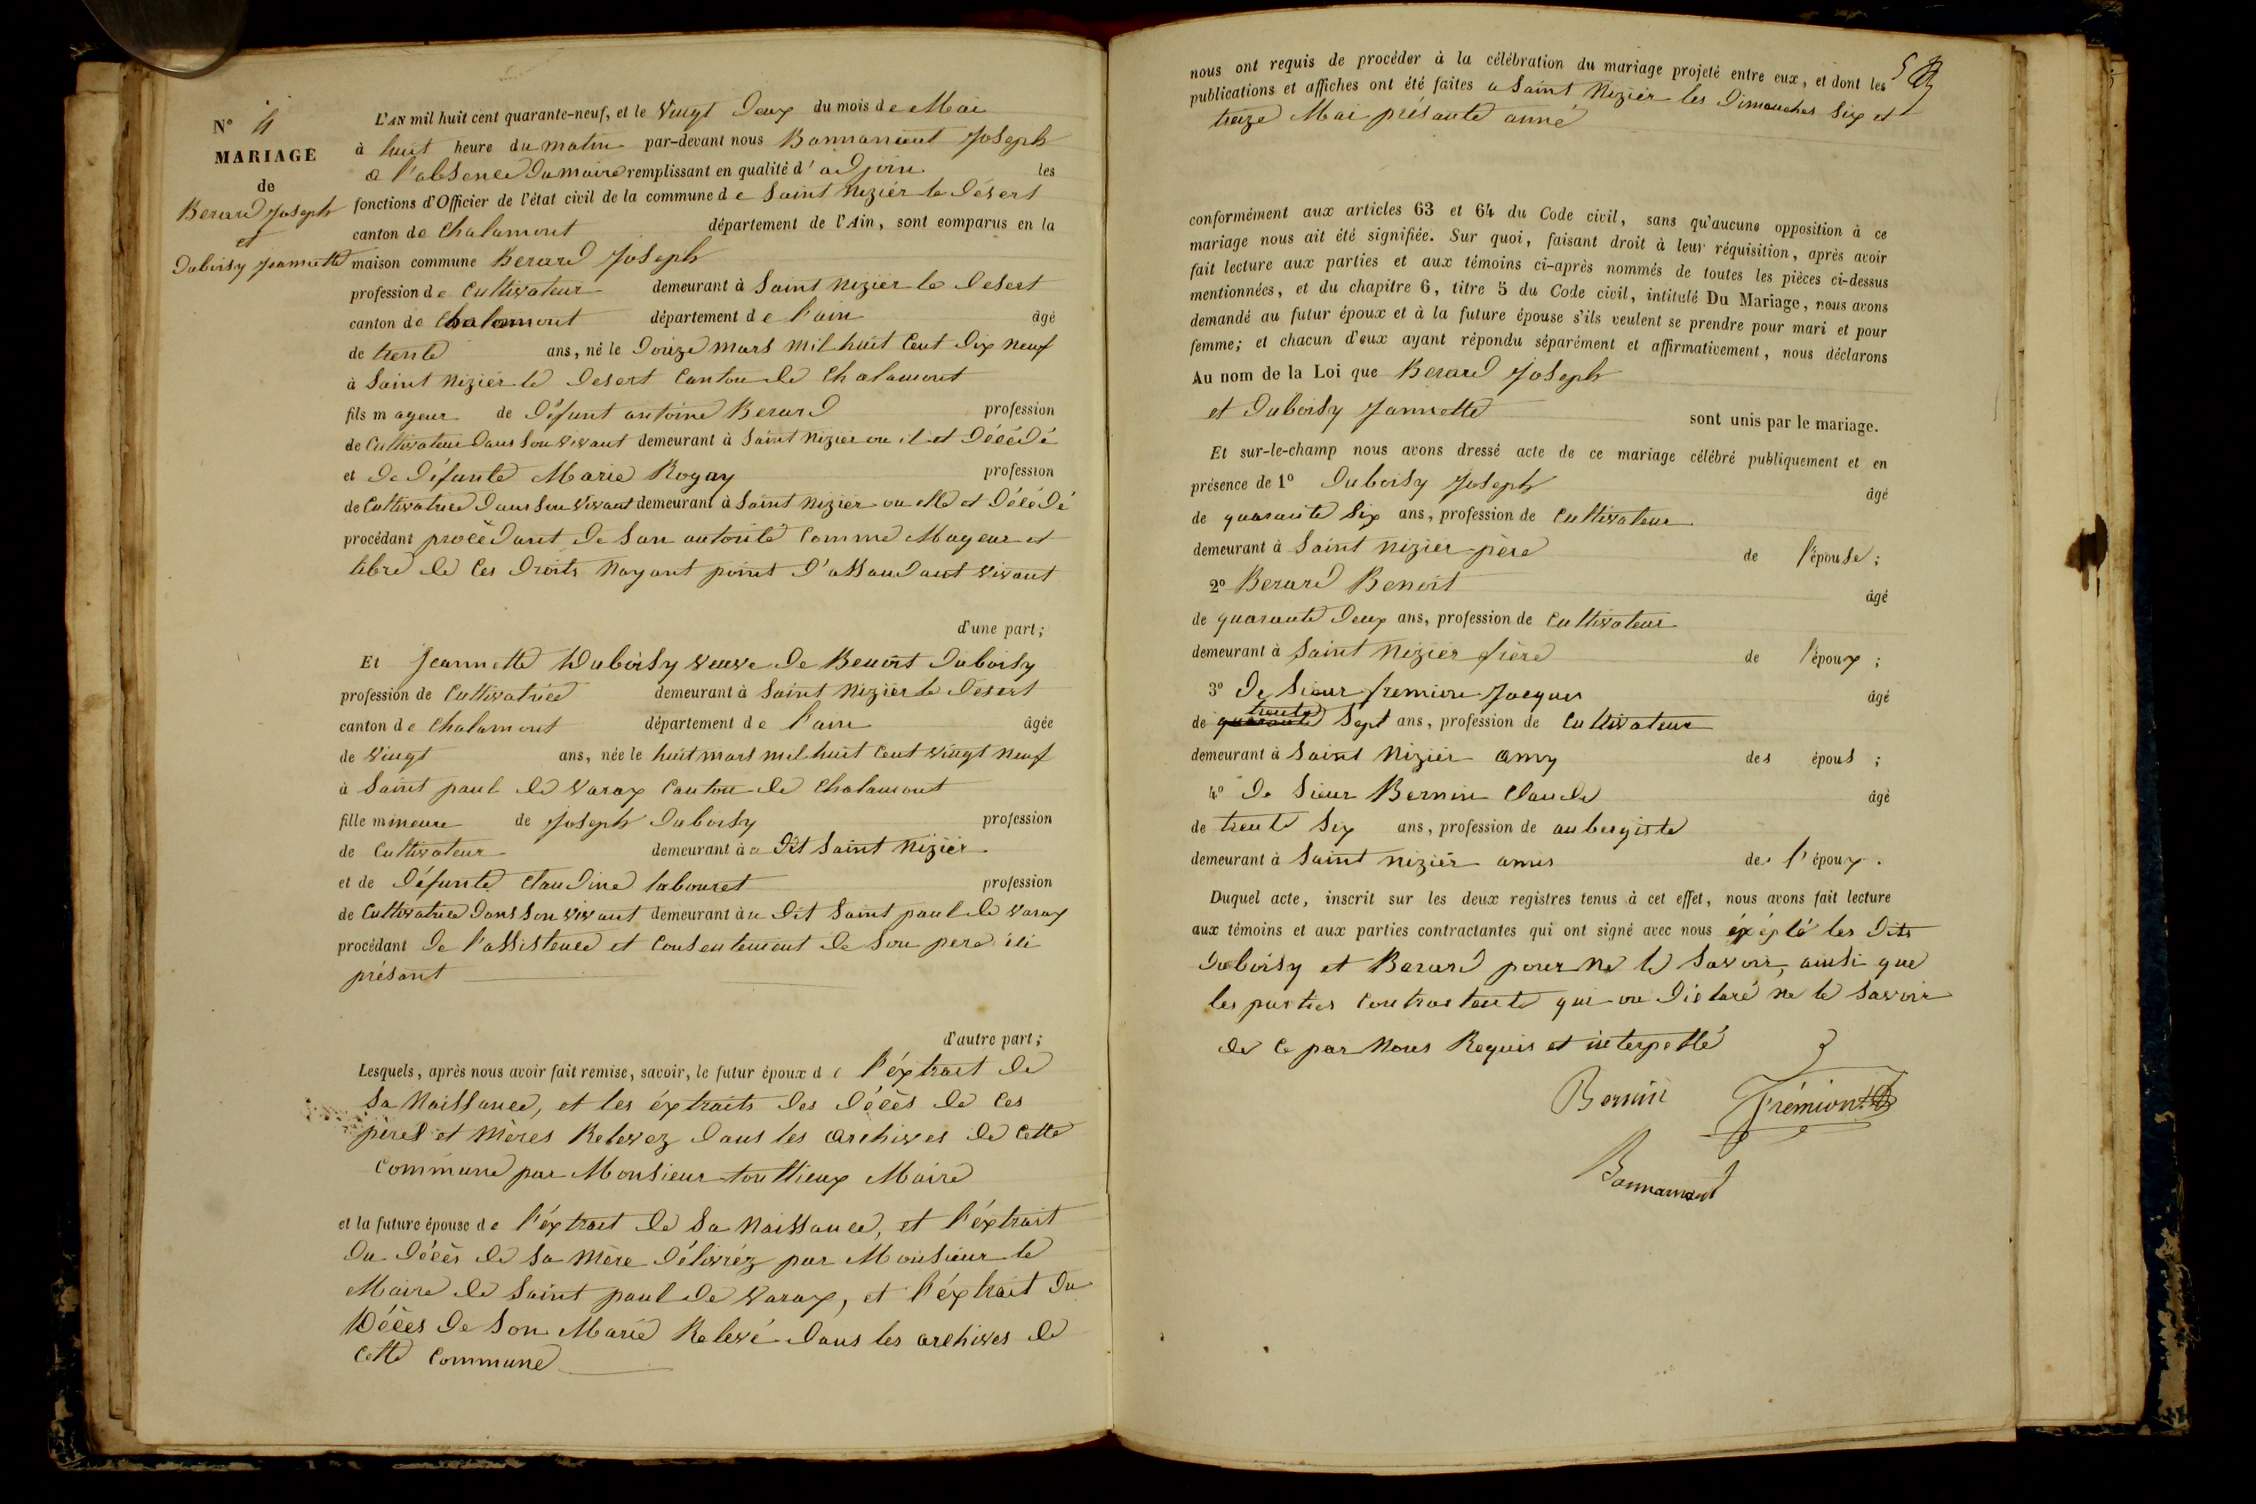 N° 4
MARIAGE
de
Berard Joseph
et
Duboisy Jeannette
L'AN mil huit cent quarante-neuf, et le vingt deux du mois de Mai
à huit heure du matin par-devant nous Bonnamont Joseph
a l'absence du maire remplissant en qualité d'adjoin les
fonctions d'Officier de l'état civil de la commune de Saint Nizièr le Désert
canton de Chalamont département de l'Ain, sont comparus en la
maison commune Berard Joseph
profession de Cultivateur demeurant à Saint Nizièr le Desert
canton de Chalamont département de l'ain âgé
de trente ans, né le Douze mars mil huit Cent Dix neuf
à Saint Nizièr le Desert Canton de Chalamont
fils mageur de Défunt antoine Berard profession
de Cultivateur Dans Son vivant demeurant à Saint Nizièr ou il et Décédé
et De Défunte Marie Rogay profession
de Cultivatrice Dans Son vivant demeurant à Saint Nizièr ou elle et Décédé
procédant procèdant de Son autorité Comme Mageur et
libre de Ces Droits Nayant point d'assandant vivant
d'une part;
Et Jeannette Duboisy veuve De Benoit Duboisy
profession de Cultivatrice demeurant à Saint Nizièr le Desert
canton de Chalamont département de l'ain âgée
de Vingt ans, née le huit mars mil huit Cent vingt Neuf
à Saint paul de Varax Canton de Chalamont
fille mineure de Joseph Duboisy profession
de Cultivateur demeurant à a Dit Saint Nizièr
et de Défunte Claudine labouret profession
de Cultivatrice Dans Son vivant demeurant àu Dit Saint paul de Varax
procédant De l'assistence et Consentement de Son pere ici
présant
d'autre part;
Lesquels, après nous avoir fait remise, savoir, le futur époux de l'éxtrait de
Sa Naissance, et les éxtraits des décès de Ces
pères et Mères Relevez Dans les Archives de Cette
Commune par Monsieur touttieux Maire
et la future épouse de l'éxtrait de Sa Naissance, et l'éxtrait
Du Décès de Sa Mère Délivréz par Monsieur le
Maire de Saint paul de Varax, et l'éxtrait du
Décès de Son Marié Relevé Dans les archives de
Cette Commune
nous ont requis de procéder à la célébration du mariage projeté entre eux, et dont les
publications et affiches ont été faites a Saint Nizièr les Dimanches Six et
treize Mai présante anné
conformément aux articles 63 et 64 du Code civil, sans qu'aucune opposition à ce
mariage nous ait été signifiée. Sur quoi, faisant droit à leur réquisition, après avoir
fait lecture aux parties et aux témoins ci-après nommés de toutes les pièces ci-dessus
mentionnées, et du chapitre 6, titre 5 du Code civil, intitulé Du Mariage, nous avons
demandé au futur époux et à la future épouse s'ils veulent se prendre pour mari et pour
femme; et chacun d'eux ayant répondu séparément et affirmativement, nous déclarons
Au nom de la Loi que Berard Joseph
et Duboisy Jannette sont unis par le mariage.
Et sur-le-champ nous avons dressé acte de ce mariage célébré publiquement et en
présence de 1° Duboisy Joseph âgé
de quarante Six ans, profession de Cultivateur
demeurant à Saint Nizièr père de l'épouse;
2° Berard Benoit âgé
de quarante Deux ans, profession de Cultivateur
demeurant à Saint Nizièr frère de l'époux;
3° De Sieur fremion Jacques âgé
de quarante trente Sept ans, profession de Cultivateur
demeurant à Saint Nizièr amy des épous;
4° De Sieur Bernin Claude âgé
de trente Six ans, profession de aubergiste
demeurant à Saint Nizièr amis de l'époux.
Duquel acte, inscrit sur les deux registres tenus à cet effet, nous avons fait lecture
aux témoins et aux parties contractantes qui ont signé avec nous éxépté les Dits
Duboisy et Berard pour Ne le Savoir, ainsi que
les parties Contractente qui on Déclaré ne le Savoir
de Ce par Nous Requis et interpellé
Bernin Frémion
Bonnamont